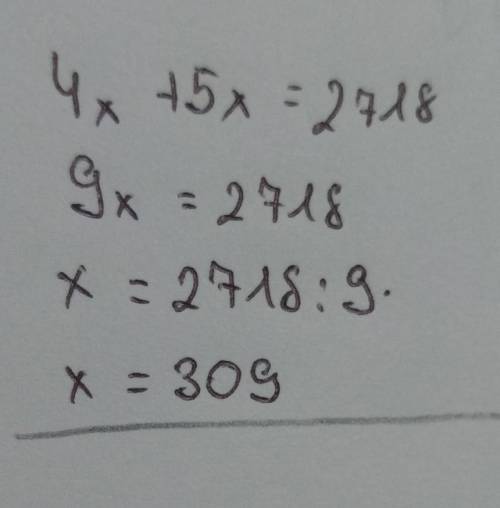 4x +5x = 2718
9x = 2718
x = 2718 : 9.
x = 309